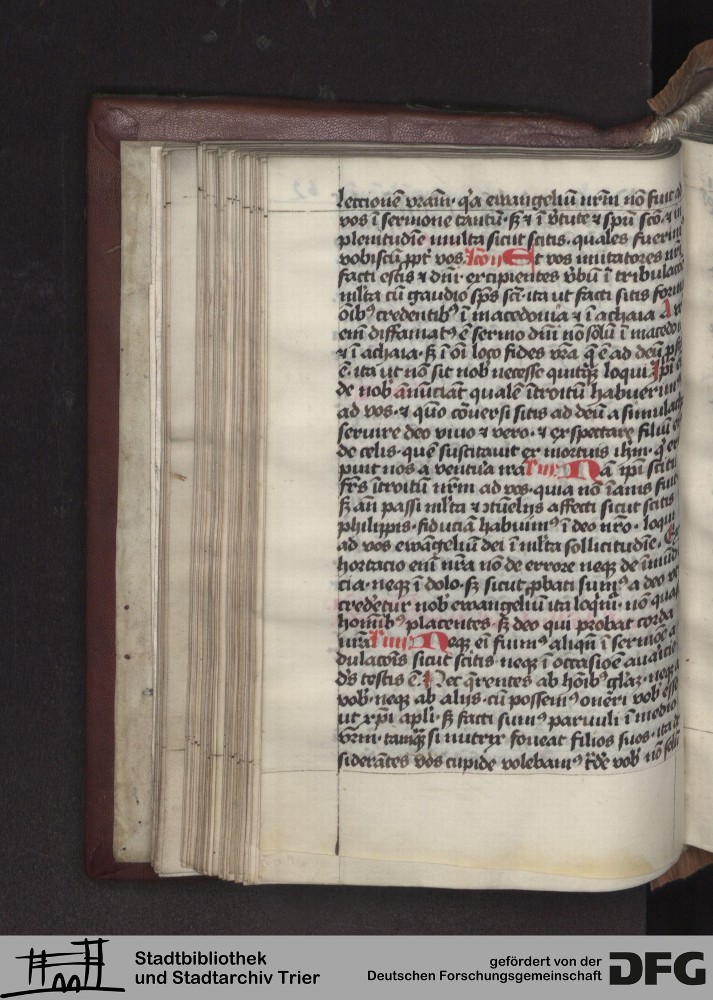 lectionē vrām· q̇a ewangeliū nr̄m nō fuit
vos ī sermone tantū· sꝫ ⁊ ī v̓tute ⁊ spū scō ⁊
plenitudīe multa sicut scitis· quales fuerim
vobiscū ꝓpt̓ vos Et vos imitatores
facti estis ⁊ dnī· excipientes v̓bū ī tribulacō
ml̄ta cū gaudio sp̄s scī· ita ut facti sitis form
oībꝰ credentibꝰ ī macedonia ⁊ ī achaia A
eīm diffamatꝰ ē sermo dnī nō solū ī macedo
⁊ ī achaia· sꝫ ī oī loco fides vr̄a q̄ ē ad deū
ē· ita ut nō sit nob̄ necesse quitq̄ꝫ loqui Ip̄i
de nob̄ ānūciāt qualē ītroitū habuerim
ad vos· ⁊ quō cōuersi sitis ad deū a simulac
seruire deo viuo ⁊ vero· ⁊ exspectare filiū
de celis· quē suscitauit ex mortuis ihm̄· q̇
puit nos a ventura ira Nā ip̄i sciti
fr̄s ītroitū nr̄m ad vos· quia nō īanis fuit
sꝫ an̄ passi ml̄ta ⁊ ꝯtūelijs affecti sicut scitis
philippis· fiduciā habuimꝰ ī deo nr̄o· loqui
ad vos ewāngeliū dei ī ml̄ta sollicitudīe· Ex
hortacio eīm nr̄a nō de errore neqꝫ de īmūd
cia· neqꝫ ī dolo· sꝫ sicut ꝓbati sumꝰ a deo
credētur nob̄ ewangeliū ita loqm̄· nō qua
homībꝰ placentes· sꝫ deo qui probat corda
nr̄a Neqꝫ eī fuimꝰ aliqn̄ ī sermōe
dulacōis sicut scitis· neqꝫ ī occasiōe auaricie
ds̄ testis ē· Nec q̄rentes ab hoībꝰ gl̄az· neqꝫ
vob̄· neqꝫ ab alijs· cū possemꝰ oneri vob̄ esse
ut xp̄i apl̄i· sꝫ facti sumꝰ paruuli ī medio
vr̄m· tamq̄ꝫ si nutrix foueat filios suos· ita
siderātes vos cupide volebamꝰ t̄d̓e vob̄ nō solū
Stadtbibliothek
und Stadtarchiv Trier
gefördert von der
Deutschen Forschungsgemeinschaft
DFG